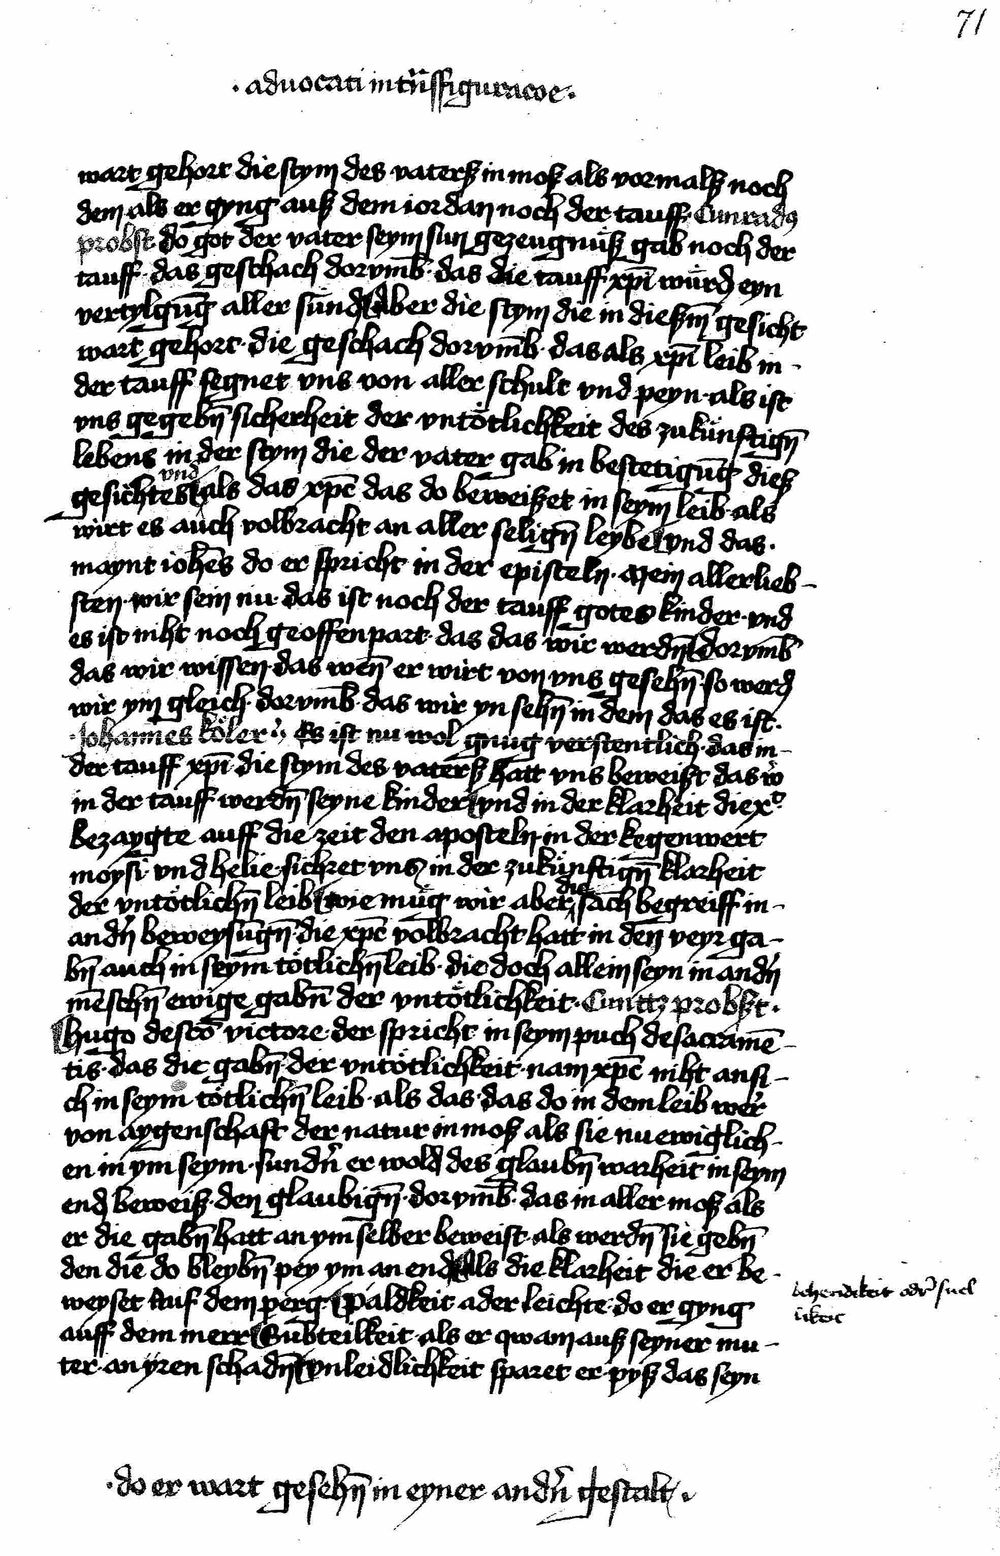 71
· advocati in tn̄ssfiguracōe ·
wart gehort die stym des vaterß in moß als vormalß noch
dem als er gyng auß dem iordan noch der tauff · Cunradꝯ
probst do got der vater seym sun gezeugnüß gab noch der
tauff · das geschach dorvmb̄ · das die tauff xp̄i würd eyn
vertylgūg aller sünd aber die stym die in dießm̄ gesicht
wart gehort · die geschach dorvmb̄ · das als xp̄i leib in -
der tauff segnet vns von aller schult vnd peyn · als ist
vns gegebn̄ sicherheit der vntötlichkeit des zukünftign̄
lebens in der stym die der vater gab in bestetigūg dieß
vnd
gesichtes als das xp̄c das do beweißet in seym leib · als
wirt es auch volbracht an aller selign̄ leybe vnd das ·
maynt ioh̄es do er spricht in der episteln · Mein allerlieb -
sten · wir sein nu · das ist noch der tauff gotes kinder · vnd
es ist niht noch geoffenpart · das das wir werdn̄ dorvmb̄
das wir wissen · das wen̄ er wirt von vns gesehn̄ · so werd
wir ym gleich · dorvmb̄ · das wir yn sehn̄ in dem das es ist ·
· Johannes köler · Es ist nu wol gnug verstentlich · das in -
der tauff xp̄i die stym des vaterß hatt vns beweißt das w̄
in der tauff werdn̄ seyne kinder vnd in der klarheit die xᵒ
bezaygte auff die zeit den aposteln in der kegenwert
moysi vnd helie · sichret vns in der zukünftign̄ klarheit
der vntötlichn̄ leib wie müg wir aber sach begreiff in -
die
andn̄ beweysūgn̄ · die xp̄c volbracht hatt in den veyr ga -
bn̄ auch in seym tötlichn̄ leib · die doch allein seyn in andn̄
mēschn̄ ewige gabn̄ der vntötlichkeit · Cunttz probst ·
Hugo de scō victore · der spricht in seym puch de sacramē -
tis · das die gabn̄ der vntötlichkeit · nam xp̄c niht an si -
ch in seym tötlichn̄ leib · als das · das do in dem leib wer̄
von aygenschaft der natur in moß als sie nu ewiglich -
en in ym seym · sundn̄ er wold des glaubn̄ warheit in seym
end beweiß · den glaubign̄ · dorvmb̄ · das in aller moß als
er die gabn̄ hatt an ym selber beweist · als werdn̄ sie gebn̄
den die do bleybn̄ pey ym an end als die klarheit die er be -
weyset auf dem perg paldkeit ader leichte · do er gyng
auff dem merr Subteilkeit · als er qwam auß seyner mu -
ter · an yren schadn̄ vnleidlichkeit sparet er · pyß das seyn
· do er wart gesehn̄ in eyner andn̄ gestalt ·